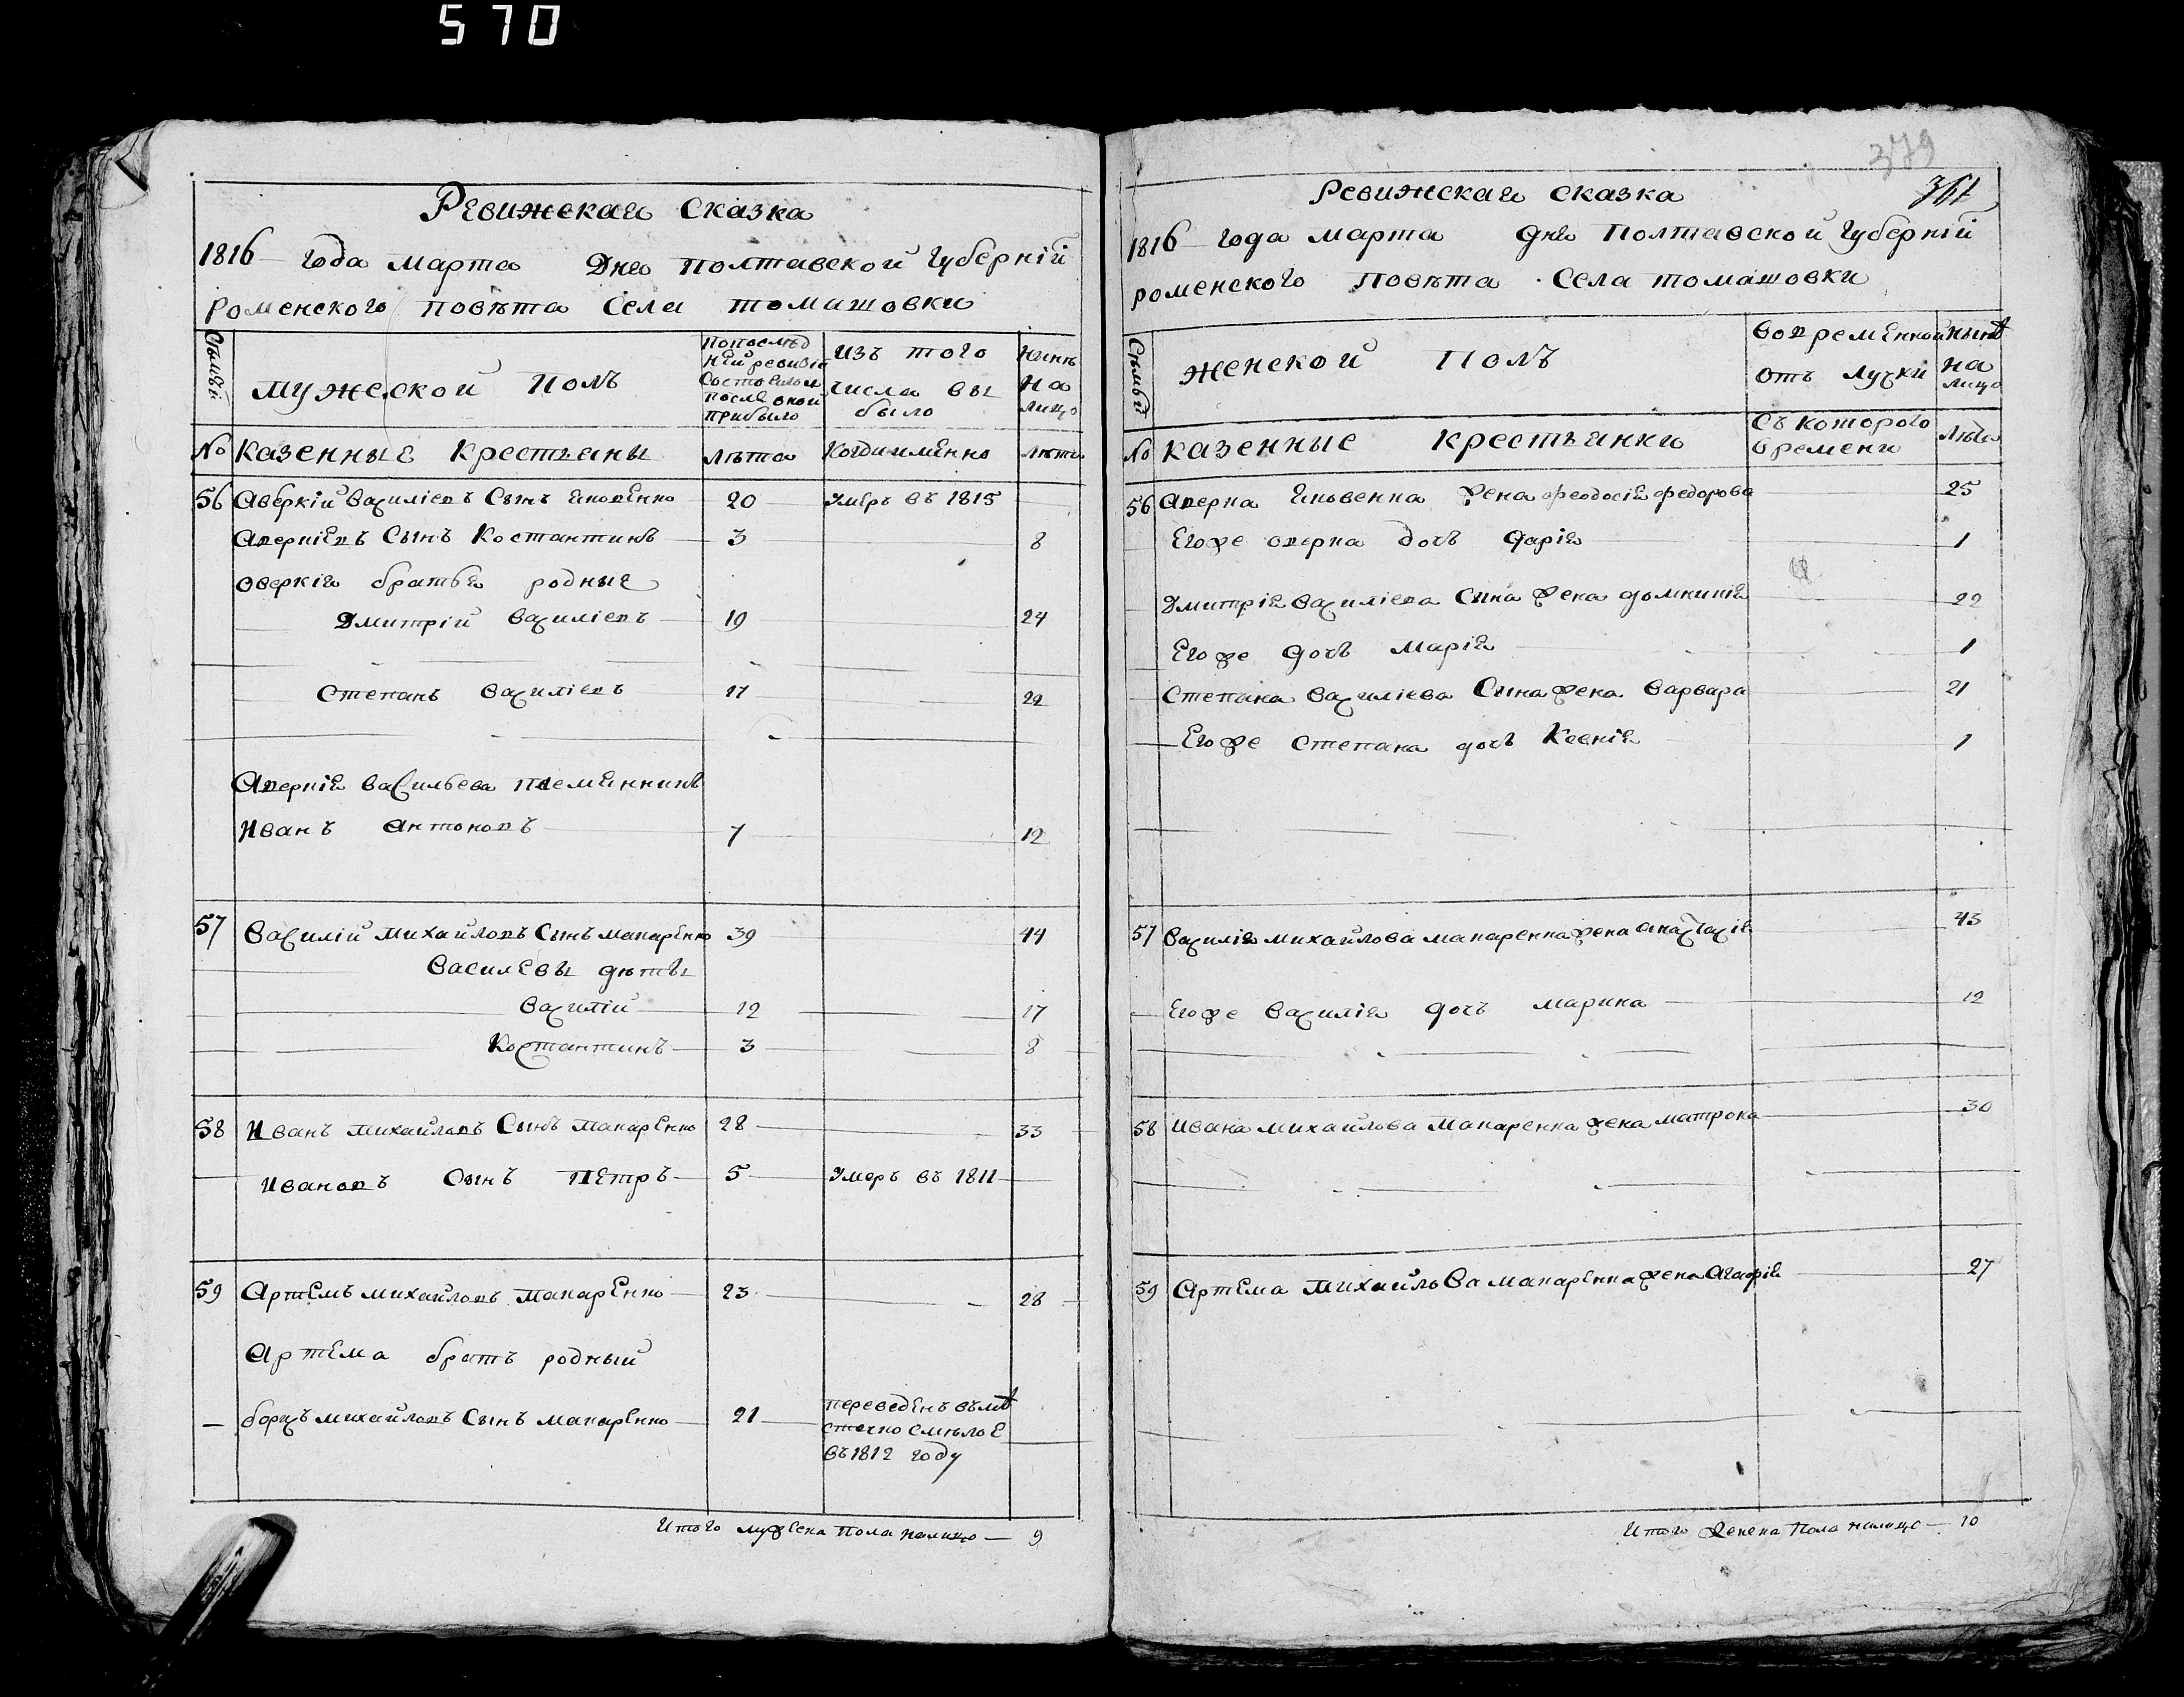 570
Ревижская Сказка
1816 года марта Дня Полтавской Губерніи
Роменского повѣта Села томашовки
Сѣмьи
мужеской полъ
По послѣд
ней ревизіи
Состояло и
после оной
прибыло
Изъ того
числа вы
было
Нынѣ
на
лицо
№ Казенные Крестьяны
лѣта
Когда именно
лѣта
56 Аверкій Василіевъ Сынъ Яковенко 20 Умеръ въ 1815
Аверкіевъ Сынъ Костантинъ 3 8
Оверкія братья родные
Дмитрій Василіевъ 19 24
Степанъ Василіевъ 17 22
Аверкія Васильева племянникъ
Иванъ Антоновъ 7 12
57 Василій Михайловъ Сынъ Макаренко 39 44
Василевы дѣты
Василій 12 17
Костантинъ 3 8
58 Иванъ Михайловъ Сынъ Макаренко 28 33
Ивановъ Сынъ Петръ 5 Умеръ въ 1811
59 Артемъ Михайловъ Макаренко 23 28
Артема братъ родный
Борисъ Михайловъ Сынъ Макаренко 21
переведенъ въ мѣ
стечко Смѣлое
въ 1812 году
Итого мужеска пола налицо — 9
379
361
Ревижская Сказка
1816 года марта дня Полтавской Губерніи
роменского Повѣта Села томашовки
Сѣмьи
женской полъ
Во временной
отъ лучки
нынѣ
на
лицо
№ казенные крестьянки
Съ которого
времени
лѣта
56 Аверка Яковенка жена феодосія федорова 25
Его же оверка дочь Дарія 1
Дмитрія Василіева Сына жена домникія 22
Его же дочь Марія 1
Степана Василіева Сына жена Варвара 21
Его же Степана дочь Ксенія 1
57 Василія Михайлова Макаренка жена анастасія 43
Его же Василія дочь Марина 12
58 Ивана Михайлова Макаренка жена матрона 30
59 Артема Михайлова Макаренка жена Агафія 27
Итого женска пола налицо — 10